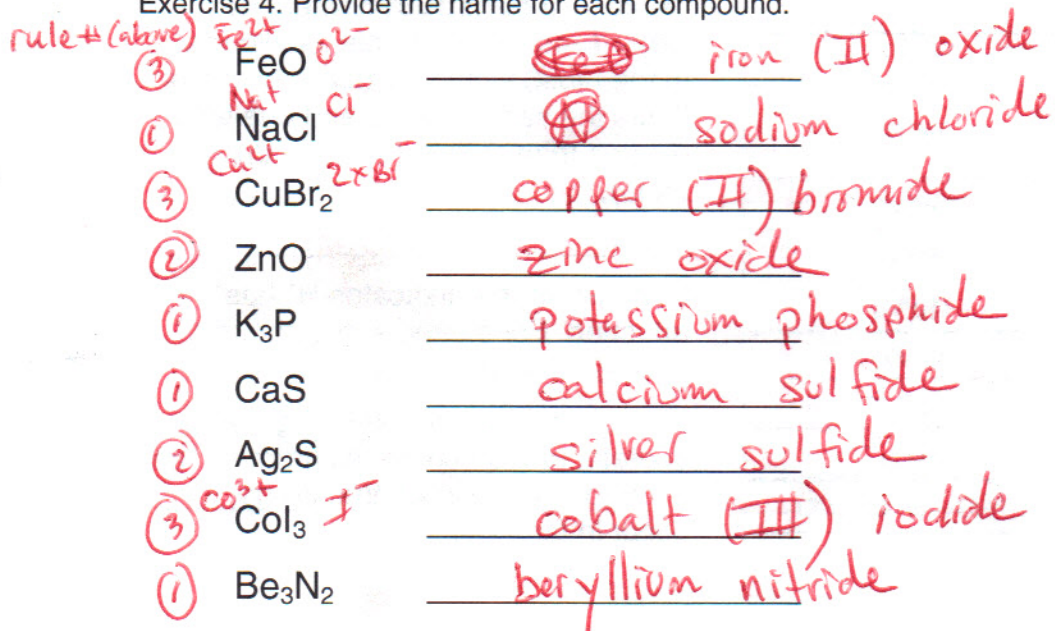 Exercise 4. Provide the name for each compound.
rule # (above) Fe2+ O2-
③ FeO iron (II) oxide
Na+ Cl-
① NaCl sodium chloride
Cu2+ 2xBr-
③ CuBr2 copper (II) bromide
② ZnO zinc oxide
① K3P potassium phosphide
① CaS calcium sulfide
② Ag2S silver sulfide
Co3+ I-
③ CoI3 cobalt (III) iodide
① Be3N2 beryllium nitride